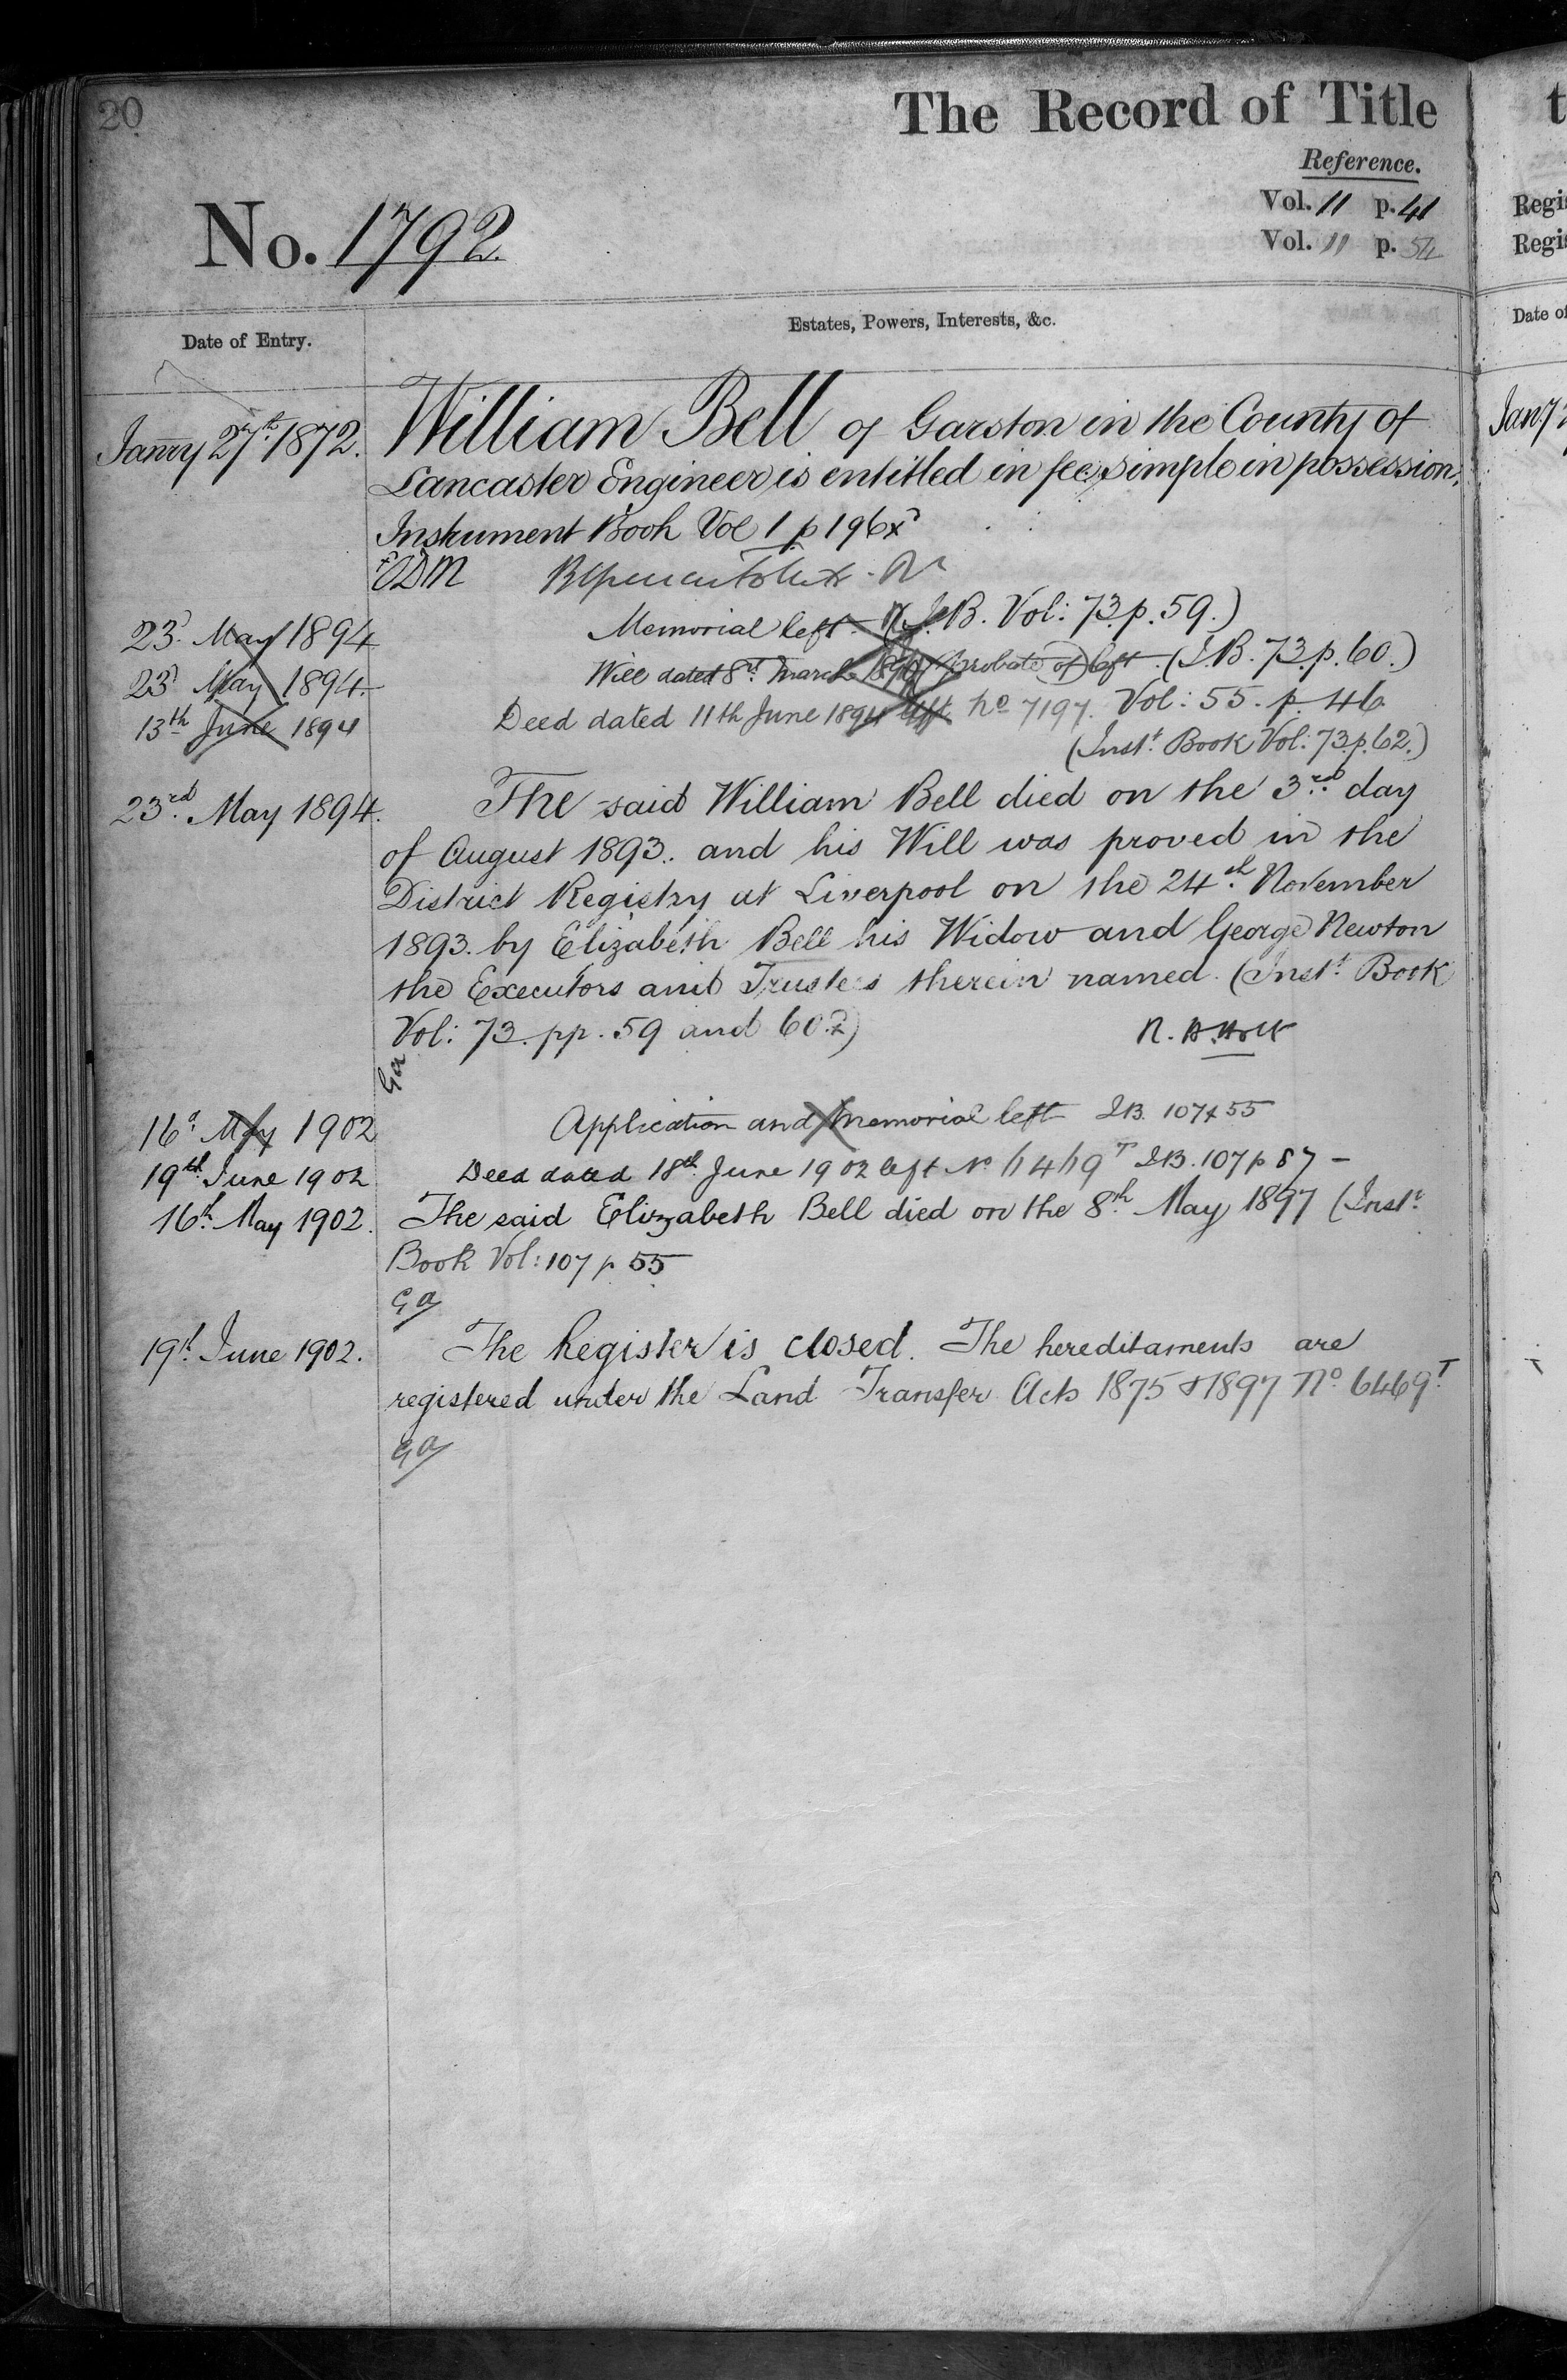 20
The Record of Title
Reference.
No. 1792.
Vol. 11 p. 41
Vol. 11 p. 54
Date of Entry.
Estates, Powers, Interests, &c.
Janry 27th 1872. William Bell of Garston in the County of
Lancaster Engineer is entitled in fee simple in possession.
Instrument Book Vol 1 p 196
23d May 1894 Memorial left (I.B. Vol: 73. p. 59.)
23d May 1894 Will dated 8th March (Probate of) left. (I.B. 73. p. 60.)
13th June 1894 Deed dated 11th June 1894 left. No 7197. Vol: 55. p. 46
(Instt. Book Vol: 73. p. 62.)
23rd. May 1894. The said William Bell died on the 3rd. day
of August 1893. and his Will was proved in the
District Registry at Liverpool on the 24th. November
1893. by Elizabeth Bell his Widow and George Newton
the Executors and Trustees therein named. (Instt. Book
Vol: 73. pp. 59 and 60.)
Ga
16th May 1902 Application and Memorial left I.B. 107 p 55
19th June 1902 Deed dated 18th June 1902 left No 6469T I.B. 107 p 87 -
16th. May 1902. The said Elizabeth Bell died on the 8th May 1897 (Instt.
Book Vol: 107 p 55
Ga
19th June 1902. The Register is closed. The hereditaments are
registered under the Land Transfer Acts 1875 & 1897 No. 6469T.
Ga
t
Regi
Regi
Date of